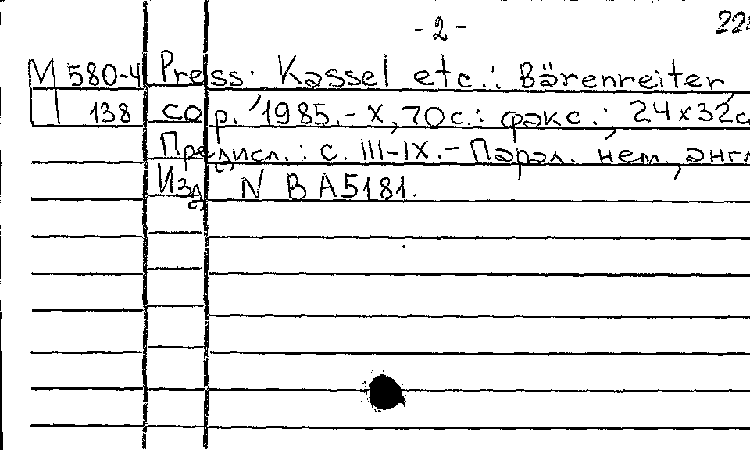 - 2 -
М 580-4 Press. Kassel etc.: Bärenreiter,
138 cop. 1985. - X, 70 с.: факс.; 24x32с
Предисл.: с. III-IX. - Парал. нем., англ
Изд. N BA5181.